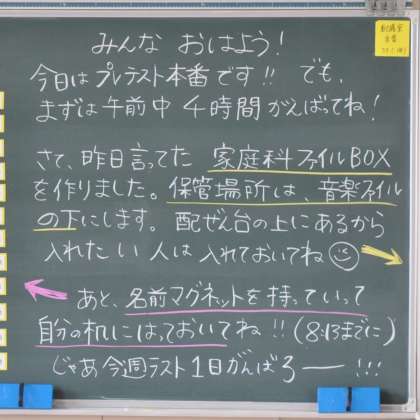 みんな おはよう!
今日はプレテスト本番です!! でも、
まずは午前中 4時間がんばってね!
さて、昨日言ってた 家庭科ファイルBOX
を作りました。保管場所は、音楽ファイル
の下にします。配ぜん台の上にあるから
入れたい人は入れておいてね
あと、名前マグネットを持っていって
自分の机にはっておいてね!! (8:15までに)
じゃあ今週ラスト1日がんばろー!!!